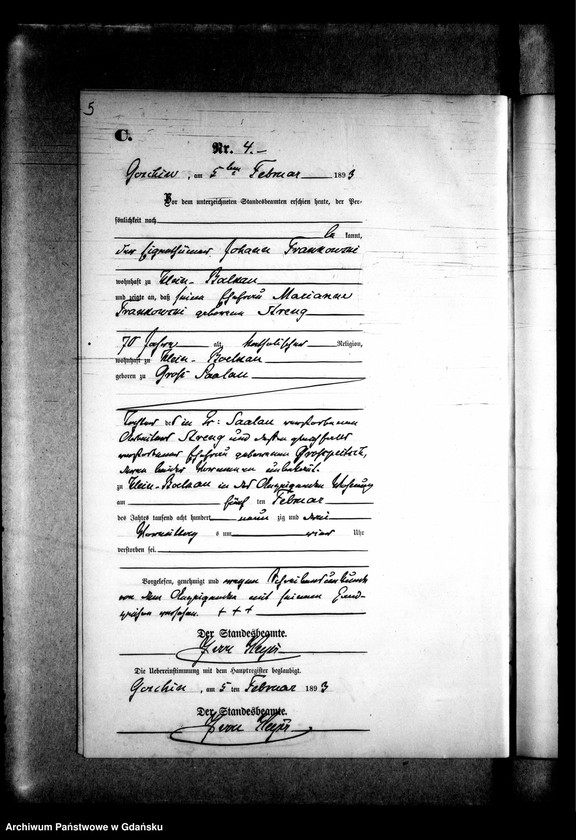 5
C.
Nr. 4.
Goschin, am 5ten Februar 1893
Vor dem unterzeichneten Standesbeamten erschien heute, der Per-
sönlichkeit nach
be kannt,
der Eigenthümer Johann Frankowski
wohnhaft zu Klein-Bölkau
und zeigte an, daß seine Ehefrau Marianne
Frankowski geborene Streng
70 Jahre alt, katholischer Religion,
wohnhaft zu Klein-Boelkau
geboren zu Groß Saalau
Tochter des in Gr: Saalau verstorbenen
Arbeiters Streng und dessen gleichfalls
verstorbenen Ehefrau geborenen
deren beider Vornamen unbekannt.
zu Klein-Boelkau in des Anzeigenden Wohnung
am fünf ten Februar
des Jahres tausend acht hundert neun zig und drei
Vormittags um vier Uhr
verstorben sei.
Vorgelesen, genehmigt und wegen Schreibensunkunde
von dem Anzeigenden mit seinem Hand-
zeichen versehen. + + +
Der Standesbeamte.
Heyer
Die Uebereinstimmung mit dem Hauptregister beglaubigt.
Goschin, am 5 ten Februar 1893
Der Standesbeamte.
Heyer
Archiwum Państwowe w Gdańsku